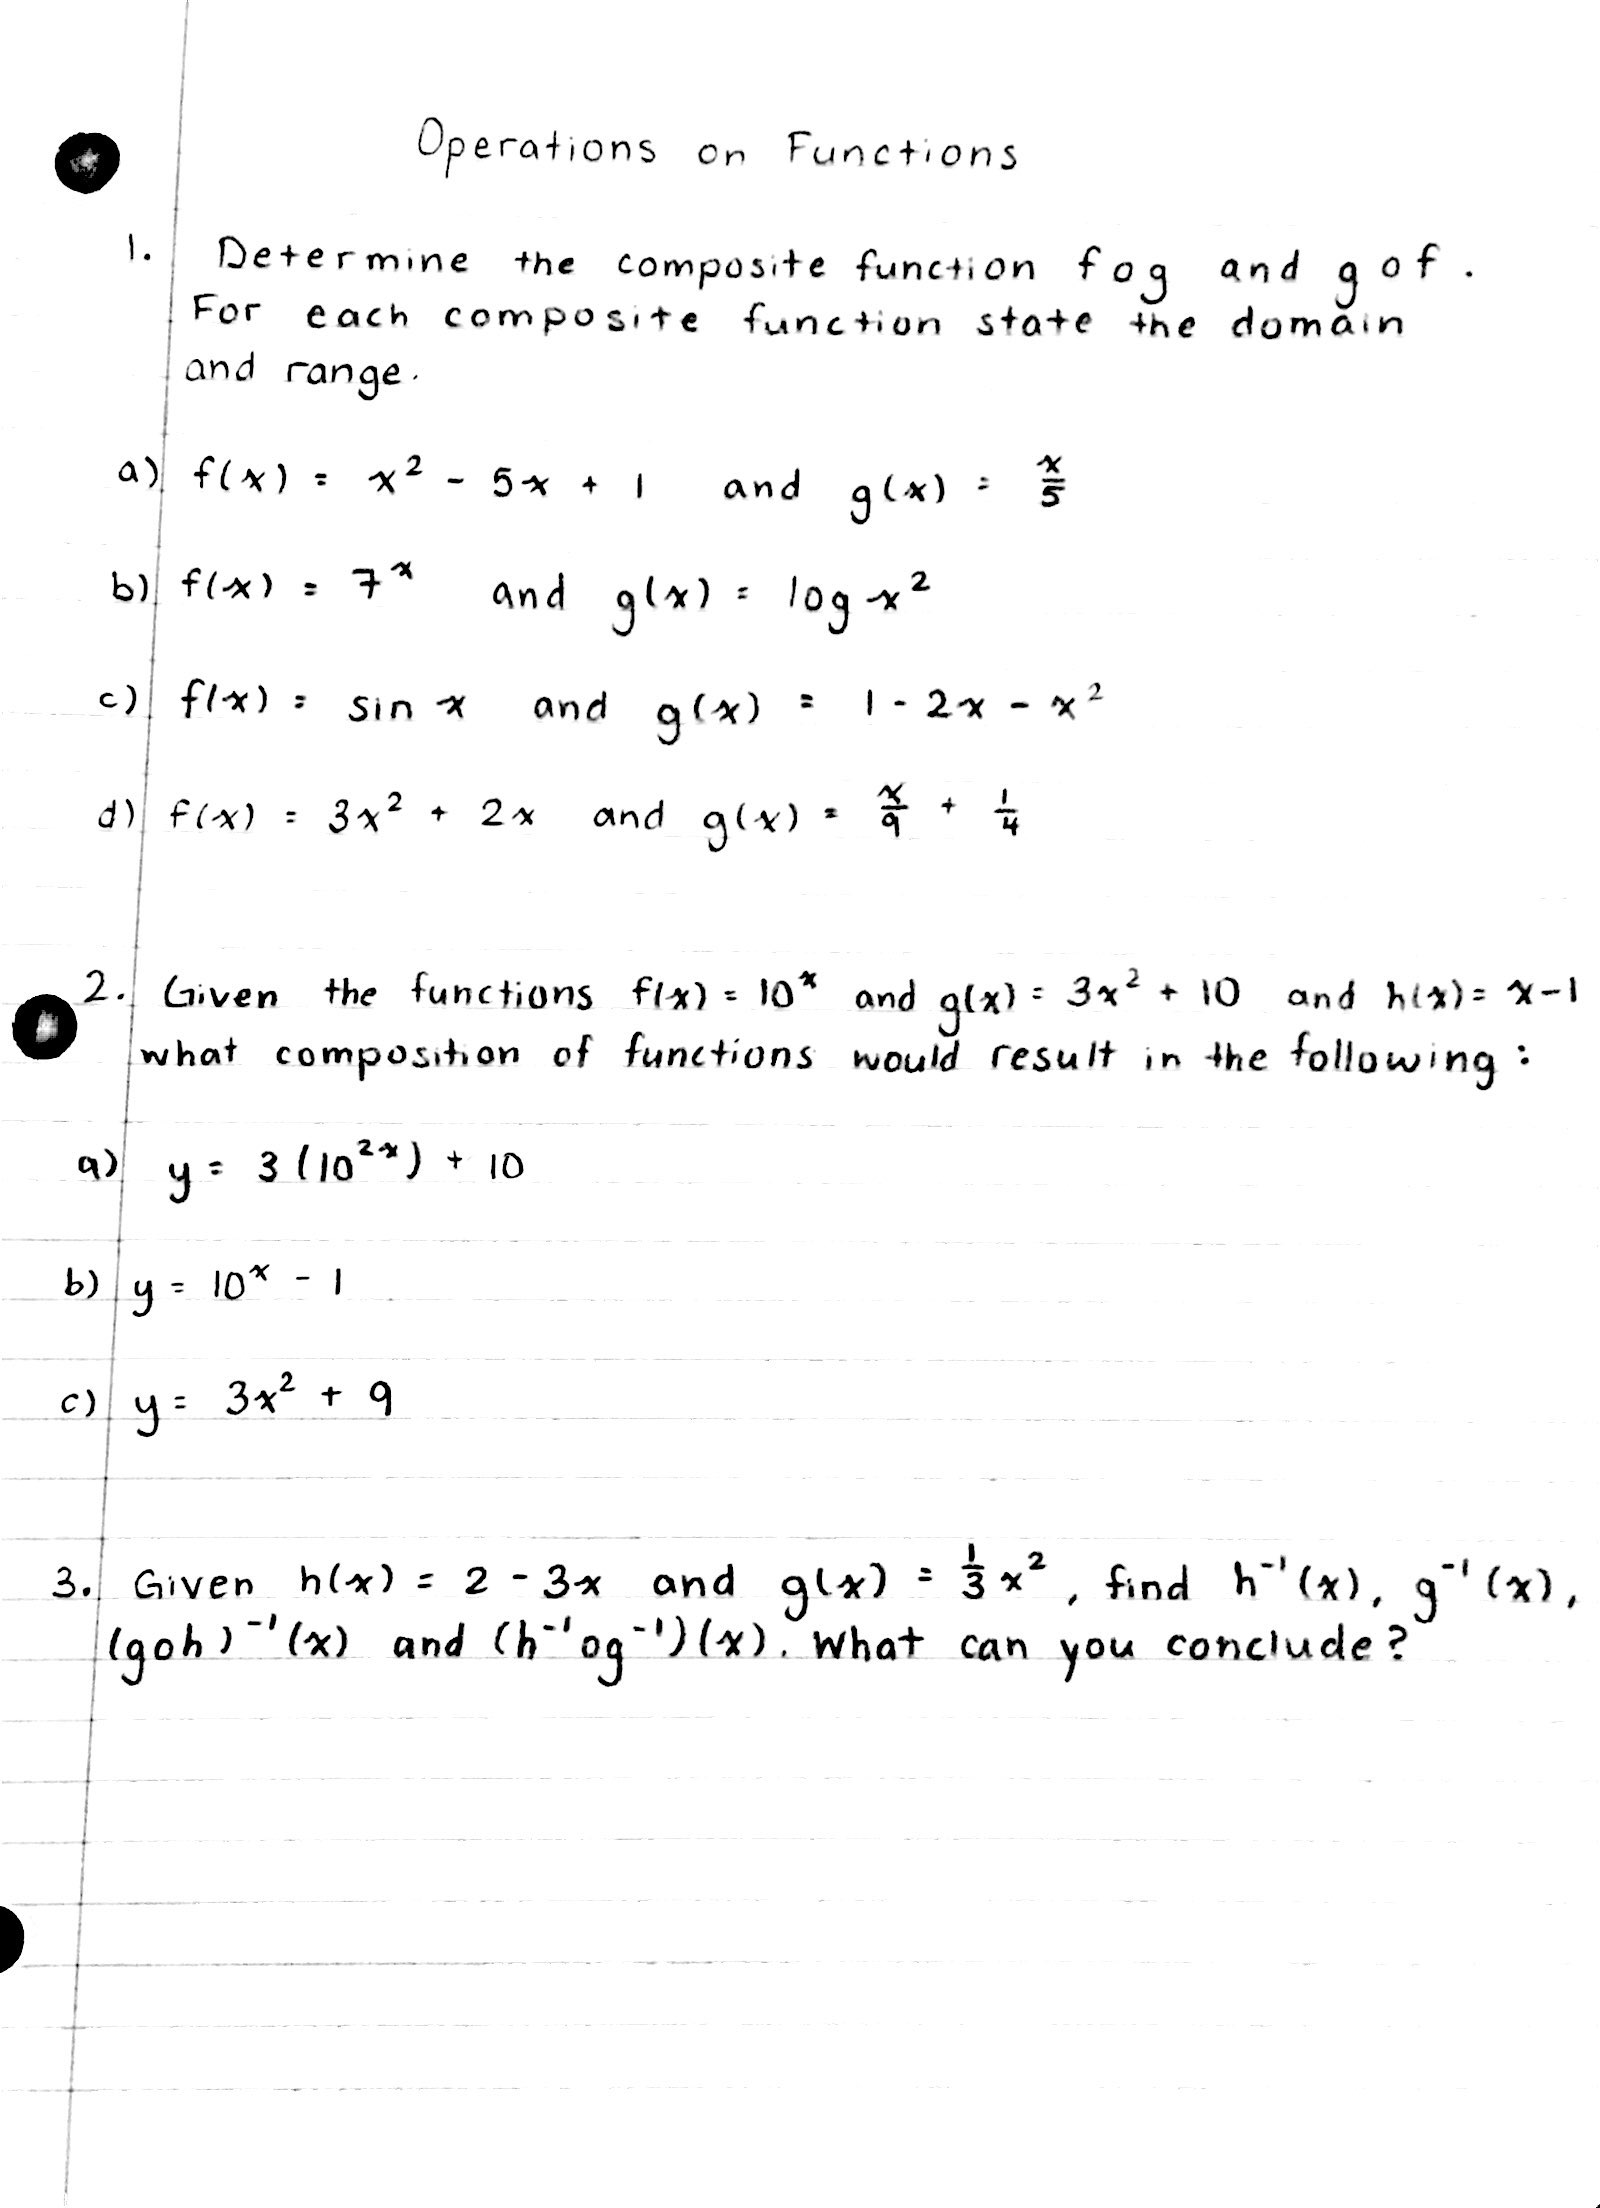 Operations on Functions
1. Determine the composite function fog and gof.
For each composite function state the domain
and range.
a) f(x) = x² - 5x + 1 and g(x) = x/5
b) f(x) = 7ˣ and g(x) = log x²
c) f(x) = sin x and g(x) = 1 - 2x - x²
d) f(x) = 3x² + 2x and g(x) = x/9 + 1/4
2. Given the functions f(x) = 10ˣ and g(x) = 3x² + 10 and h(x) = x-1
what composition of functions would result in the following:
a) y = 3(10²ˣ) + 10
b) y = 10ˣ - 1
c) y = 3x² + 9
3. Given h(x) = 2 - 3x and g(x) = 1/3 x², find h⁻¹(x), g⁻¹(x),
(goh)⁻¹(x) and (h⁻¹og⁻¹)(x). What can you conclude?